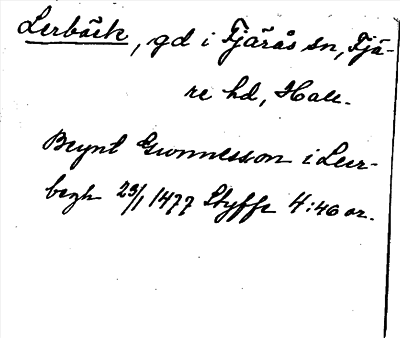 Lerbäck, gd i Fjärås sn, Fjä-
re hd, Hall.
Beynt Gwnnesson i Leer-
begh 23/1 1477 Styffe 4:46 or.